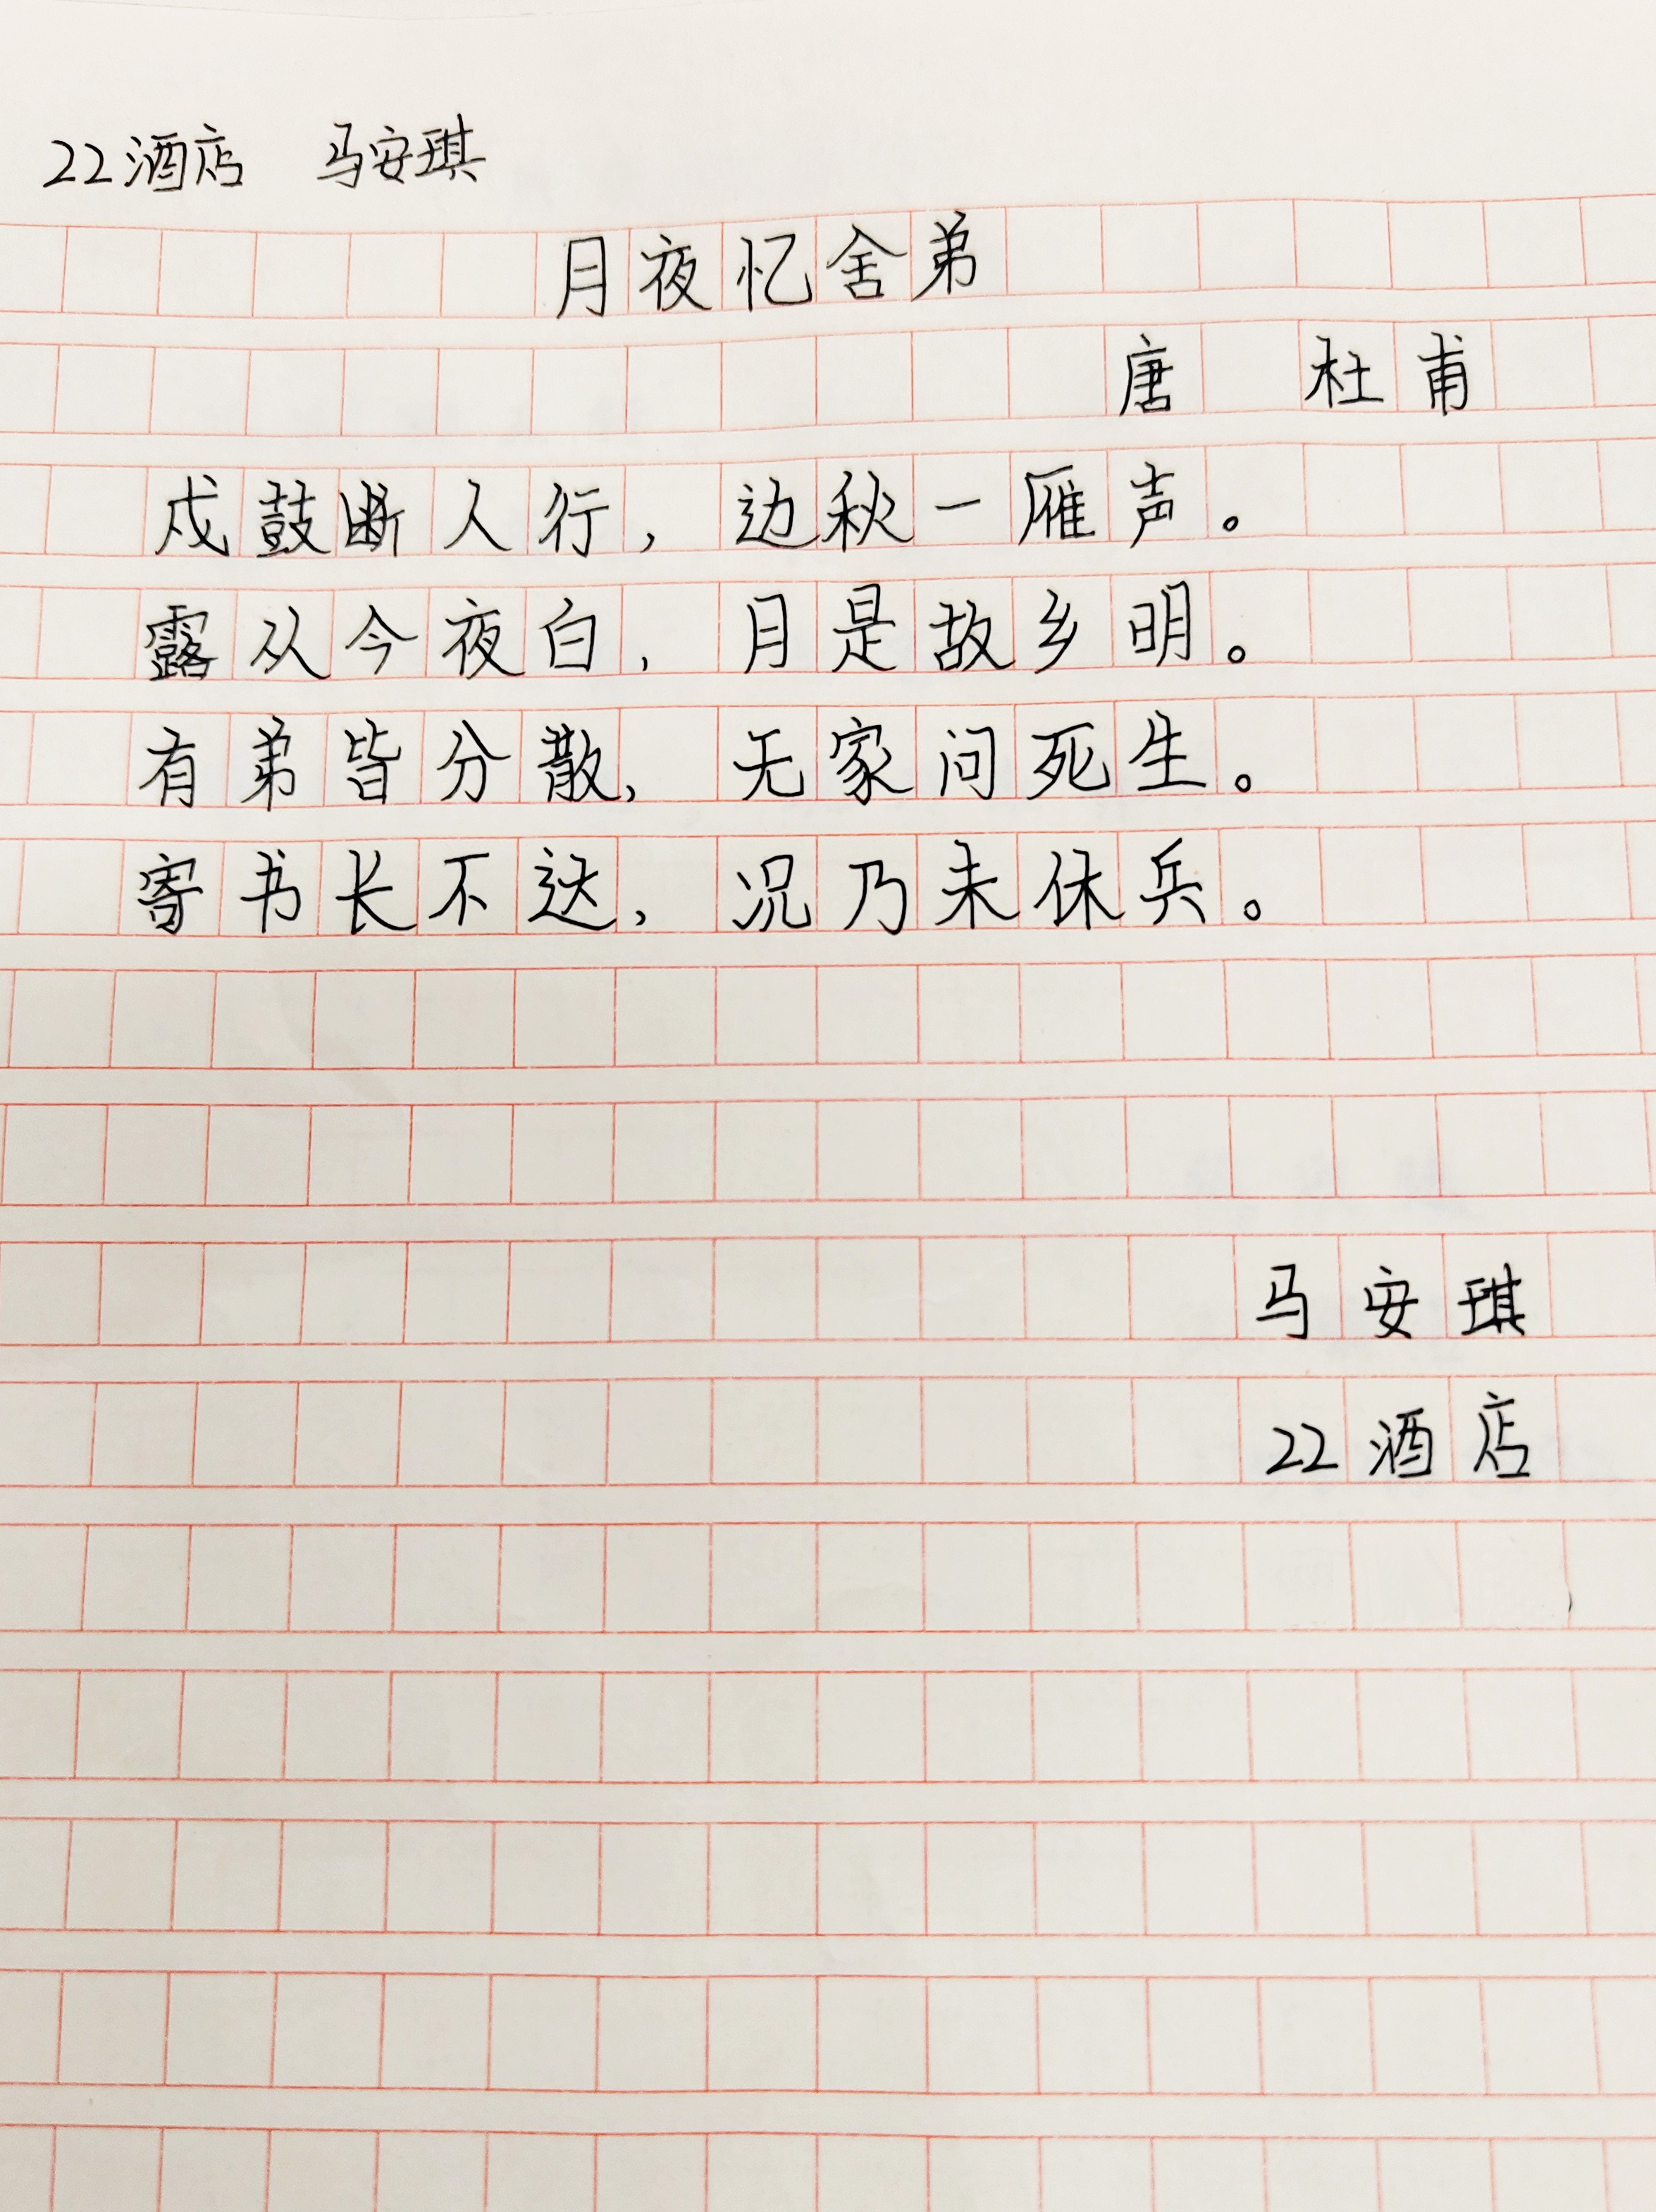 22酒店 马安琪
月夜忆舍弟
唐 杜甫
戍鼓断人行，边秋一雁声。
露从今夜白，月是故乡明。
有弟皆分散，无家问死生。
寄书长不达，况乃未休兵。
马安琪
22酒店